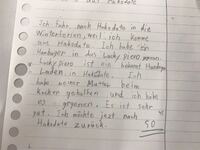 Ich fuhr nach Hakodate in die
Winterferien, weil ich komme
aus Hakodate. Ich habe ein
Hamburger in das Lucky pierro gegessen.
Lucky pierro ist ein bekannt Hamburger
Laden in Hakodate. Ich
habe meiner Mutter beim
kochen geholfen und ich habe
es gegessen. Es ist sehr
gut. Ich möchte jetzt nach
Hakodate zurück.
50